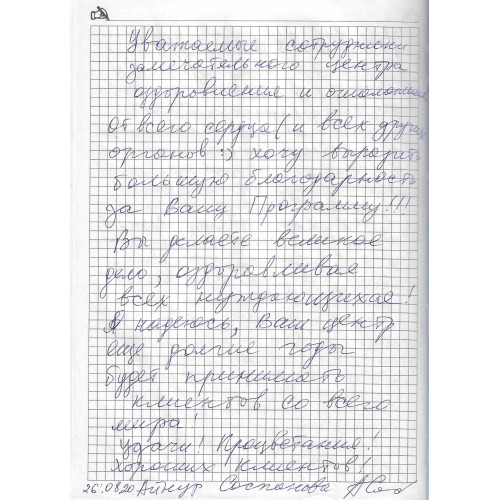 Уважаемые сотрудники
замечательного центра
оздоровления и омоложения
от всего сердца (и всех других
органов :) хочу выразить
большую благодарность
за Вашу Программу!!!
Вы делаете великое
дело, оздоравливая
всех нуждающихся!
Я надеюсь, Ваш центр
еще долгие годы
будет принимать
клиентов со всего
мира!
Удачи! Процветания!
Хороших Клиентов!
26.08.20 Айнур Соспанова